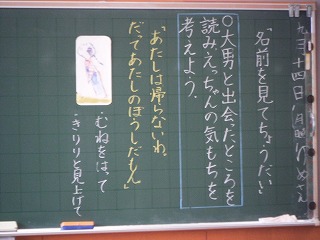 九月十四日(月曜)
「名前を見てちょうだい」
○大男と出会ったところを
読み、えっちゃんの気もちを
考えよう。
「あたしは帰らないわ。
だってあたしのぼうしだもん」
・むねをはって
・きりりと見上げて